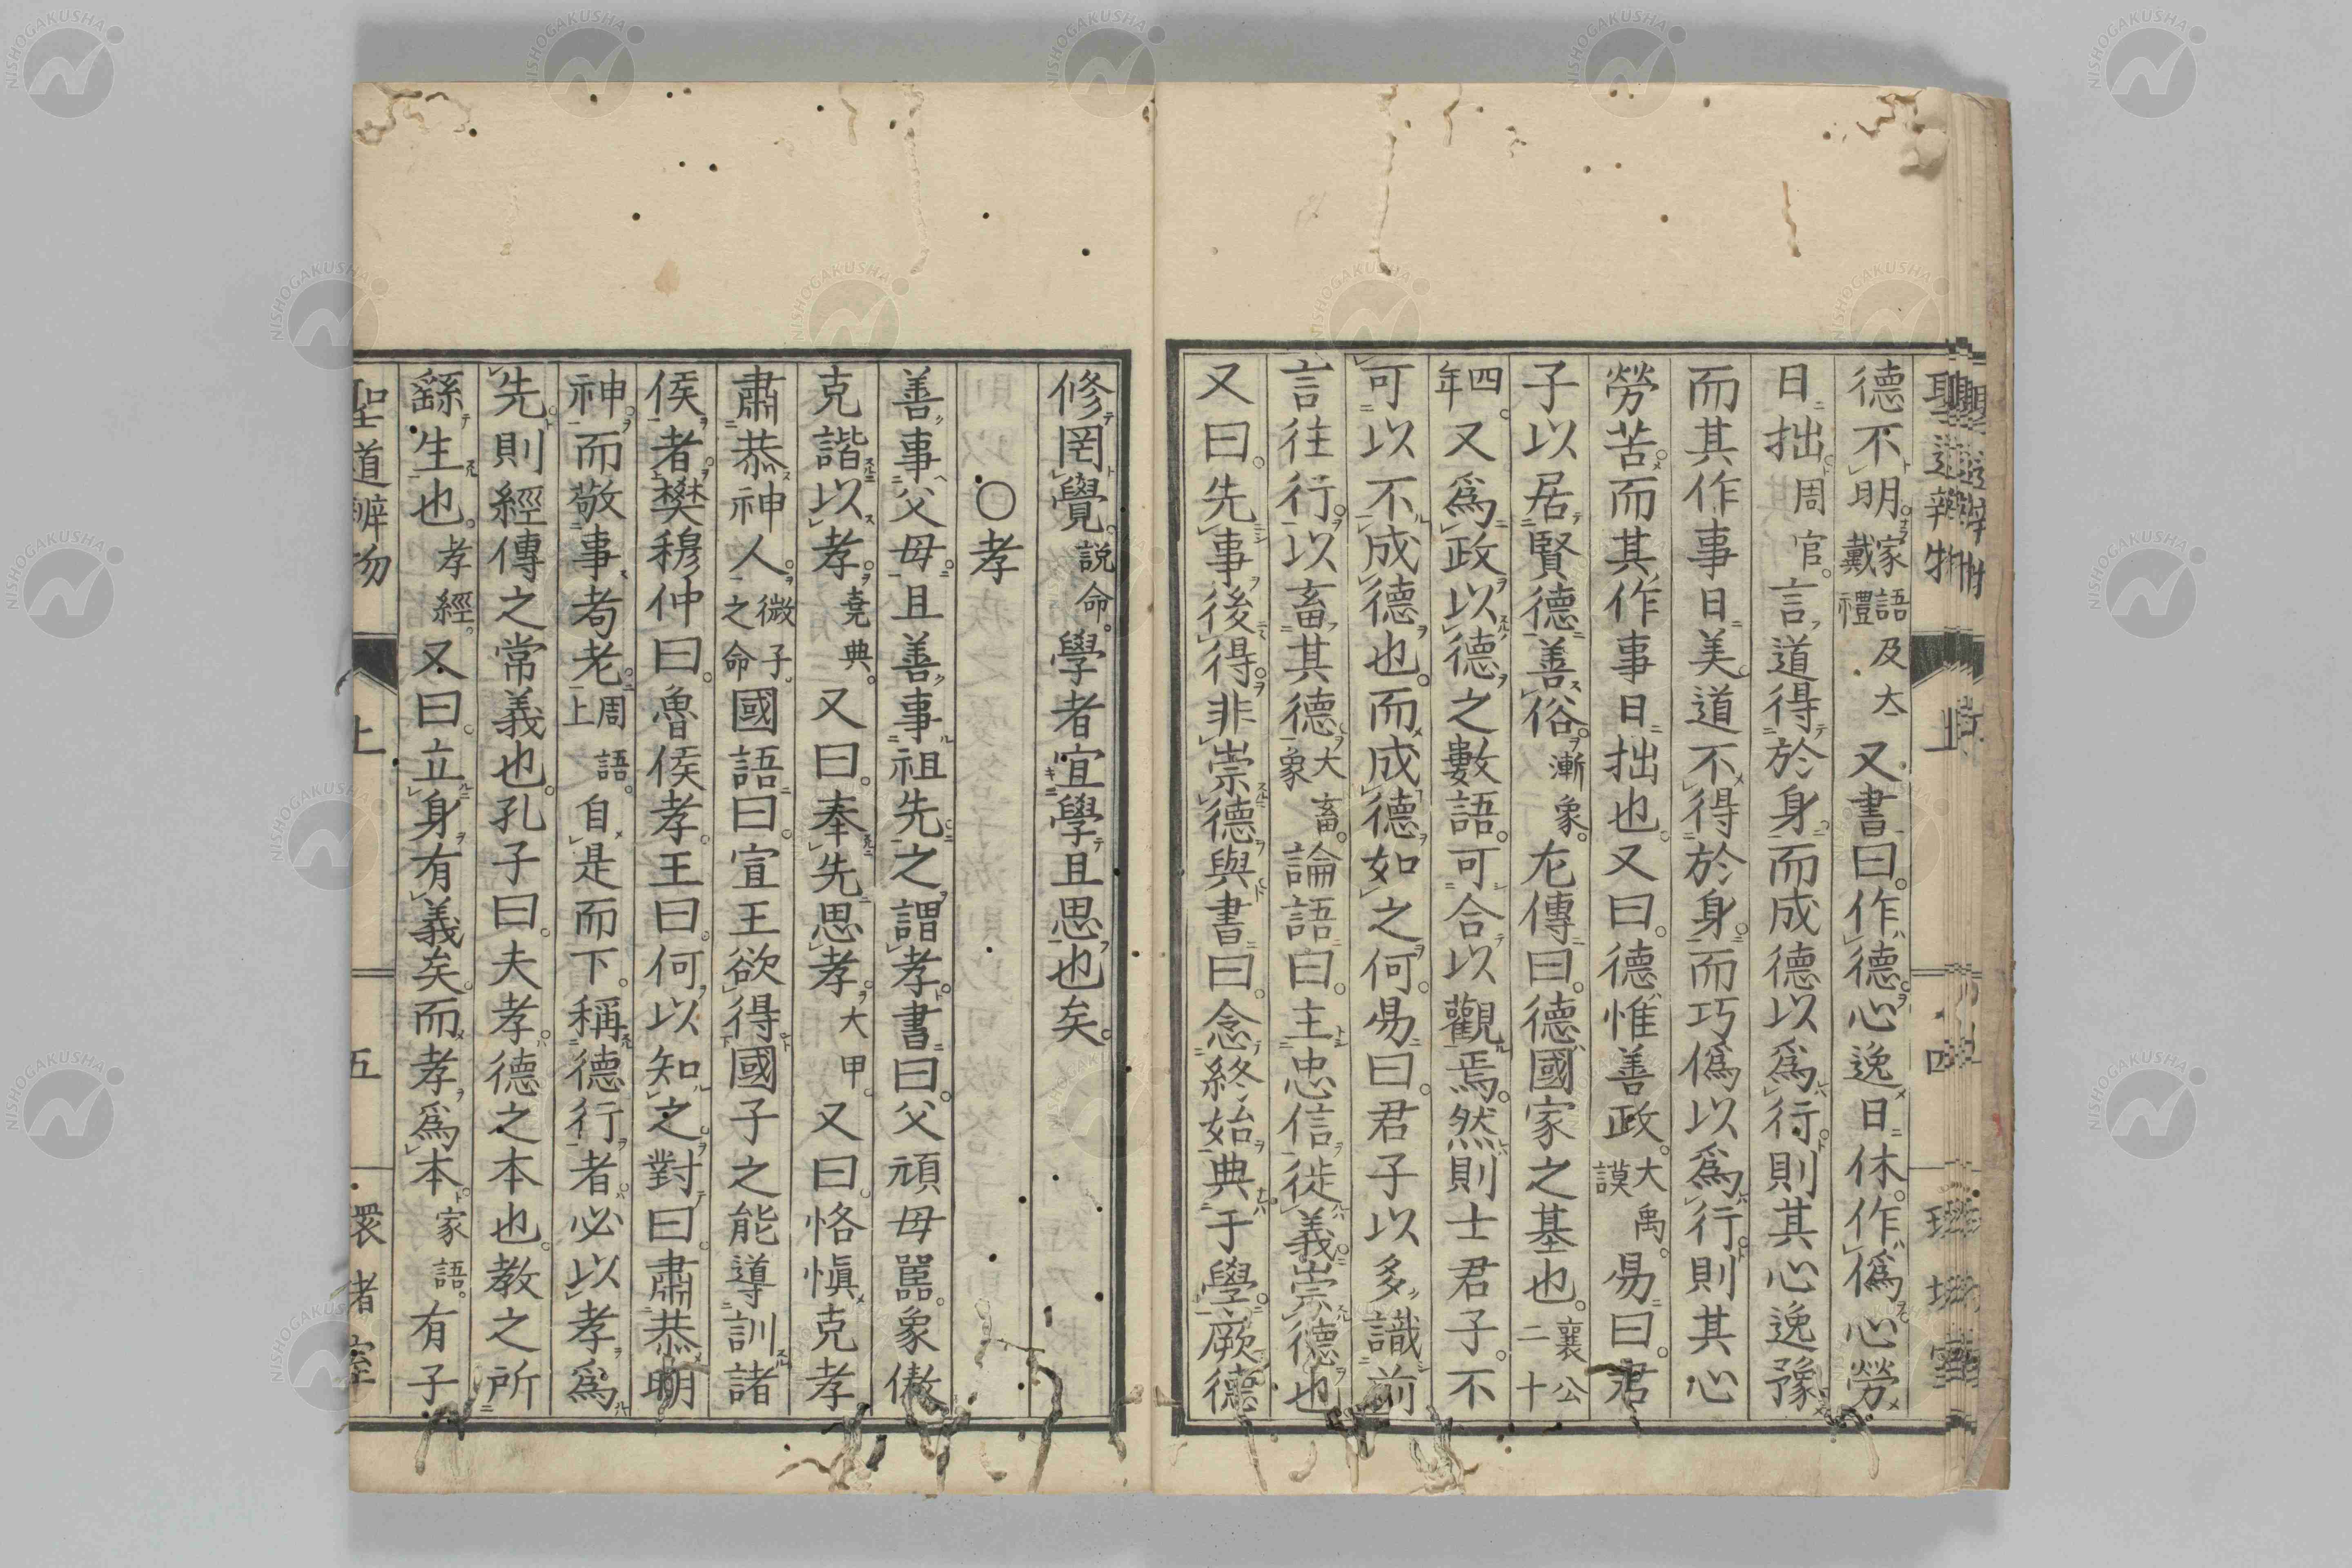 德不明家語及大戴禮又書曰作德心逸日休作僞心勞
日拙周官言道得於身而成德以爲行則其心逸豫
而其作事日美道不得於身而巧僞以爲行則其心
勞苦而其作事日拙也又曰德惟善政大禹謨易曰君
子以居賢德善俗漸象左傳曰德國家之基也襄公二十
四年又爲政以德之數語可合以觀焉然則士君子不
可以不成德也而成德如之何易曰君子以多識前
言往行以畜其德大畜象論語曰主忠信徙義崇德也
又曰先事後得非崇德與書曰念終始典于學厥德
修罔覺說命學者宜學且思也矣
○孝
善事父母且善事祖先之謂孝書曰父頑母嚚象傲
克諧以孝堯典又曰奉先思孝大甲又曰恪愼克孝
肅恭神人微子之命國語曰宣王欲得國子之能導訓諸
侯者樊穆仲曰魯侯孝王曰何以知之對曰肅恭明
神而敬事耇老周語上自是而下稱德行者必以孝爲
先則經傳之常義也孔子曰夫孝德之本也教之所
繇生也孝經又曰立身有義矣而孝爲本家語有子
聖道辨物 上 五 環堵室
NISHOGAKUSHA